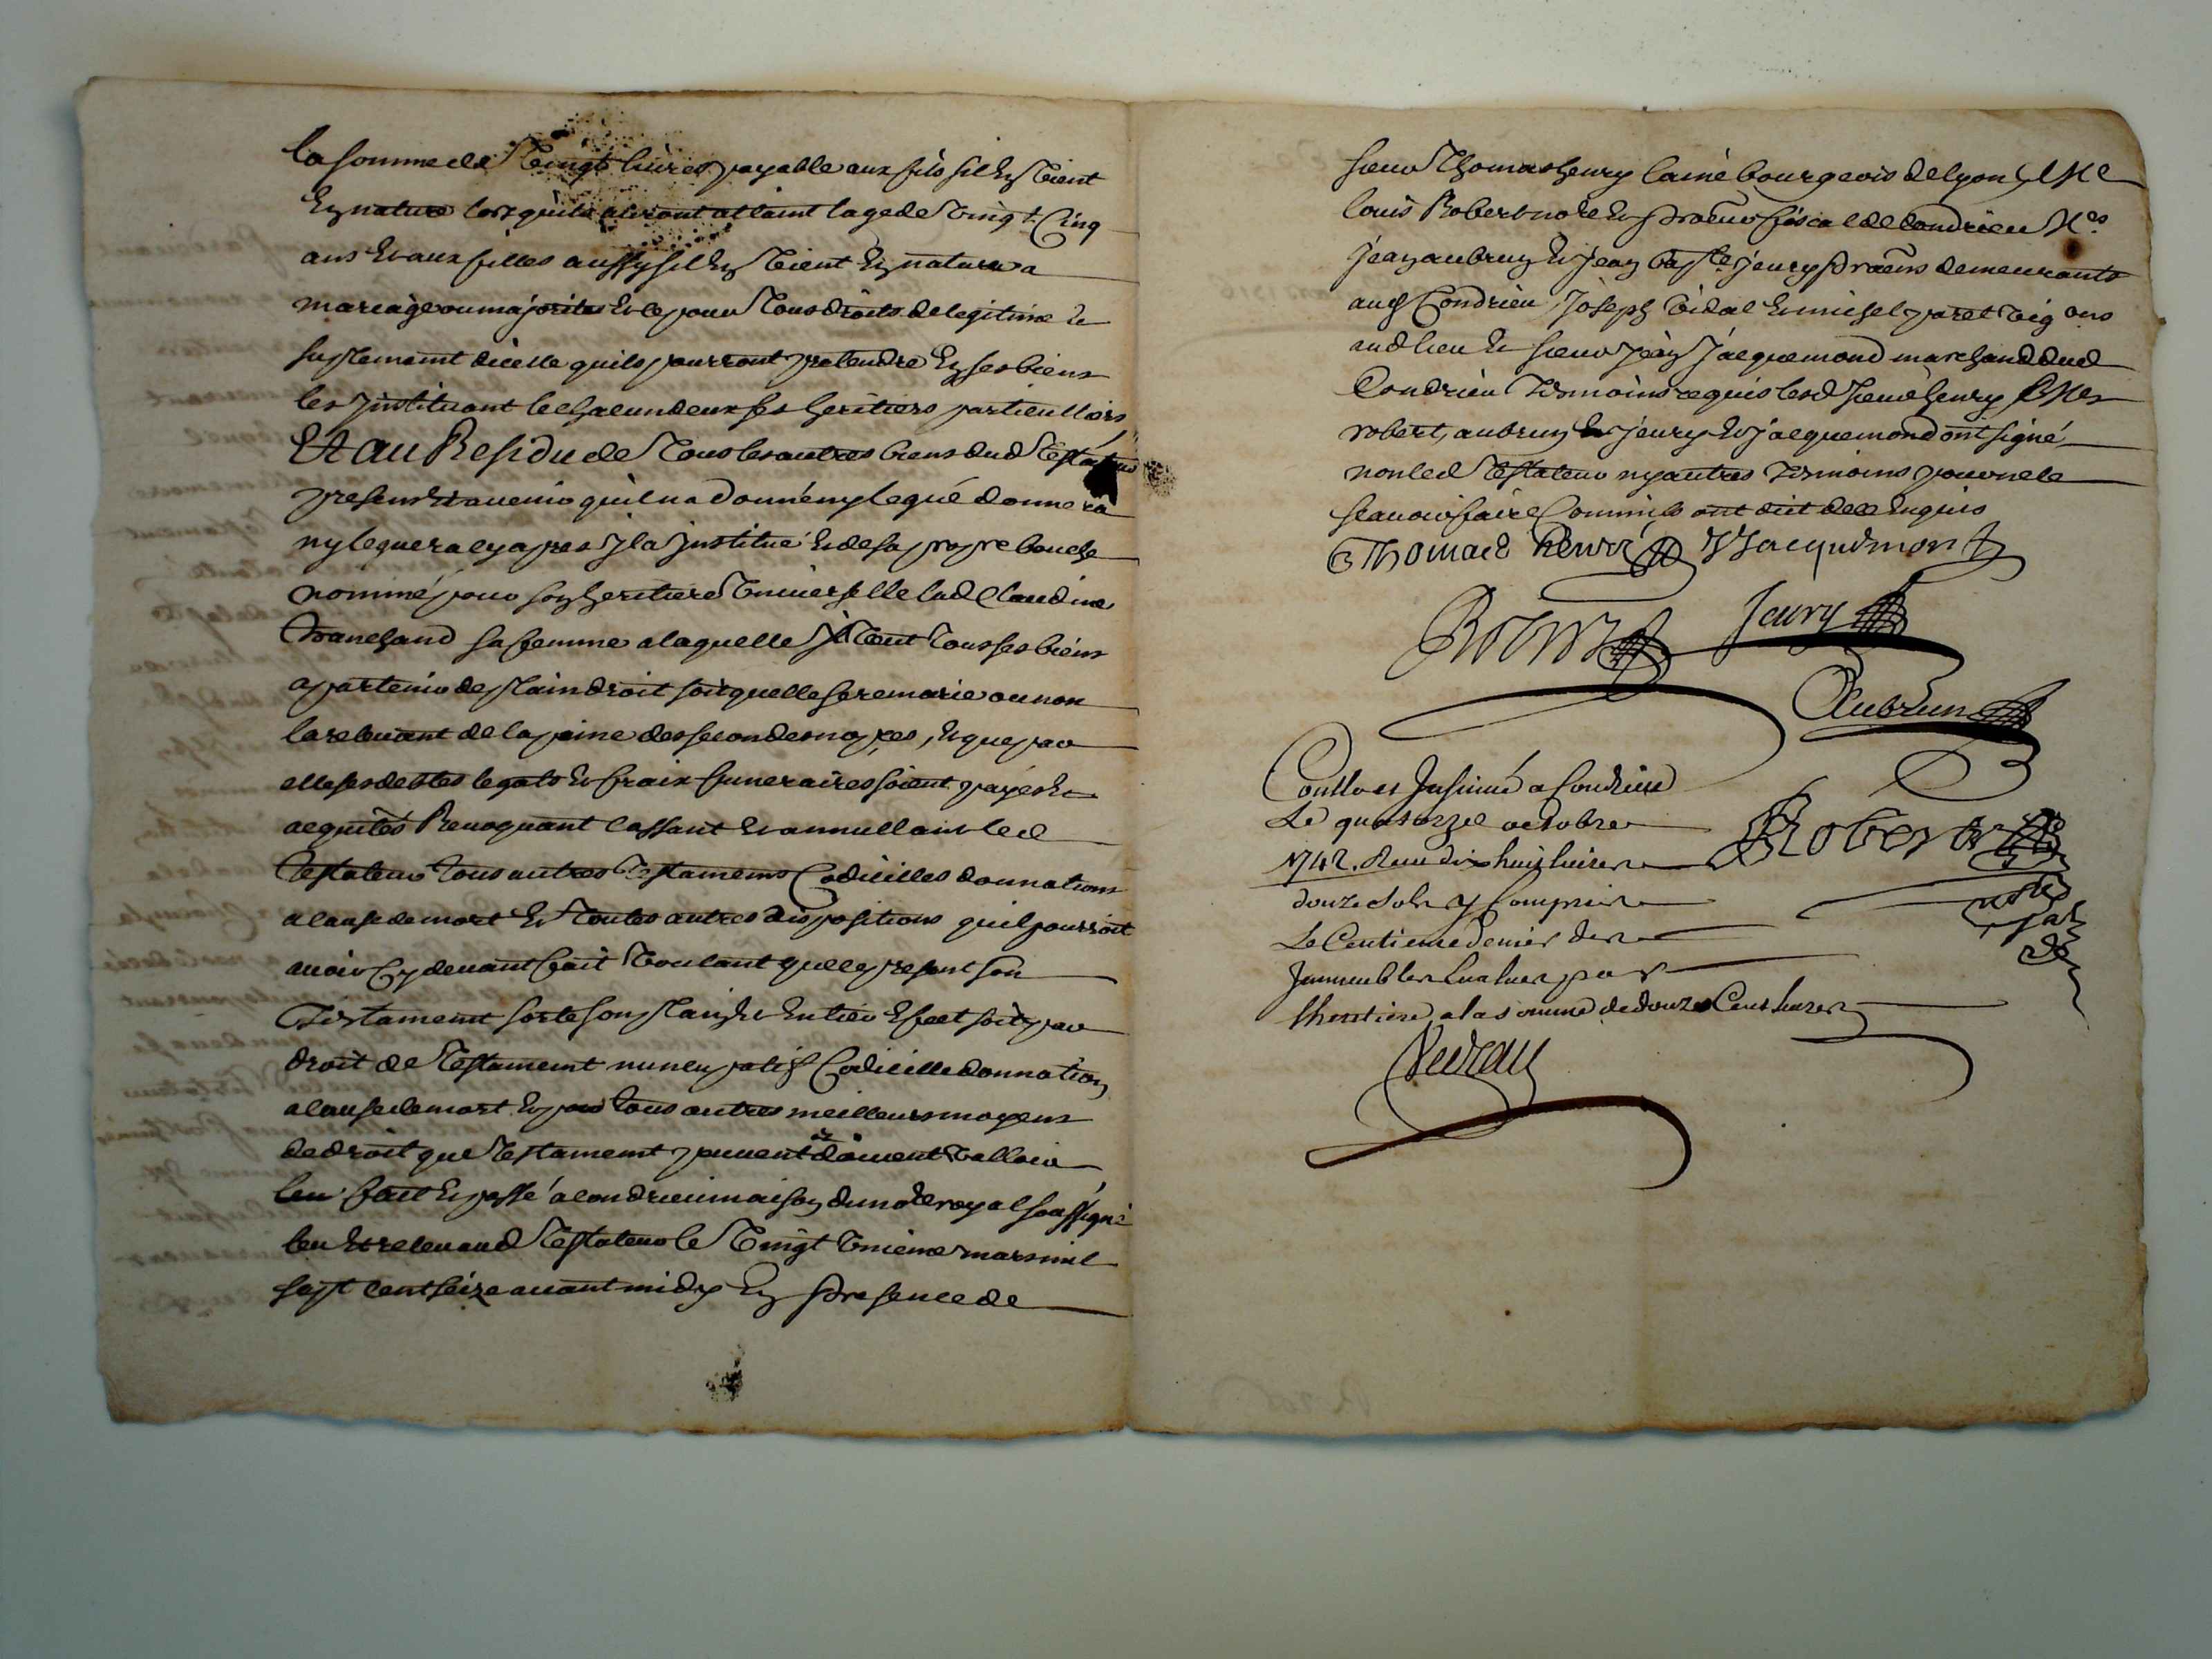 la somme de Vingt livres payable aux fils sil En Vient
En nature lorsquils auront attaint lage de Vingt Cinq
ans Et aux filles aussy sil En Vient En nature a
mariage ou majorité Et ce pour Tous droits de legitime Et
suplement dicelle quils pourront pretendre En ses biens
les Instituant Et chacun deux ses heritiers particulliers
Et au Residu de Tous les autres biens dud Testateur
presens Et avenir quil na donné ny legué donnera
ny leguera cy apres Il a Institué Et de sa propre bouche
nommé pour son heritiere Universelle lad Claudine
sa femme a laquelle Il Veut Tous ses biens
apartenir de plain droit soit quelle se remarie ou non
la relevant de la peine des secondes nopces, Et que par
elle ses debtes legats Et fraix funeraires soient payés Et
acquités Revoquant Cassant Et annullant led
Testateur Tous autres Testaments Codicilles donnations
a cause de mort Et Toutes autres dispositions quil pourroit
avoir Cy devant fait Voulant que le present son
Testament sorte son plain Et Entier Effect soit par
droit de Testament nuncupatif Codicille donnation
a cause de mort Et par Tous autres meilleurs moyens
de droit que Testament peuvent Et doivent Valloir
fait Et passé a Condrieu maison du no.re royal soussigné
leu Et releu aud Testateur le Vingt Unieme mars mil
sept cent seize avant midy En presence de
sieur Thomas henry laine bourgeois de lyon, Me
louis Robert no.re Et procur fiscal de Condrieu Mes
jean aubrun Et jean bap.te jeury procurs demeurants
aud Condrieu, Joseph Vidal Et michel paret Vig.ons
aud lieu Et sieur jean Jacquemond marchand dud
Condrieu Temoins requis lesd sieur henry Mes
robert, aubrun Et jeury Et jacquemond ont signé
non led Testateur ny autres Temoins pour ne le
scavoir faire Comme ils ont dit de ce Enquis
Thomas henry J Jacquemont
Robert Jeury
Aubrun
Coullé et Insinué a Condrieu
Le quatorze octobre
1742. Receu dix huit livres
douze sols y Compris
Le Centieme denier des
Immeubles Evalués par
lheritiere a la somme de douze Cent livres
Robert